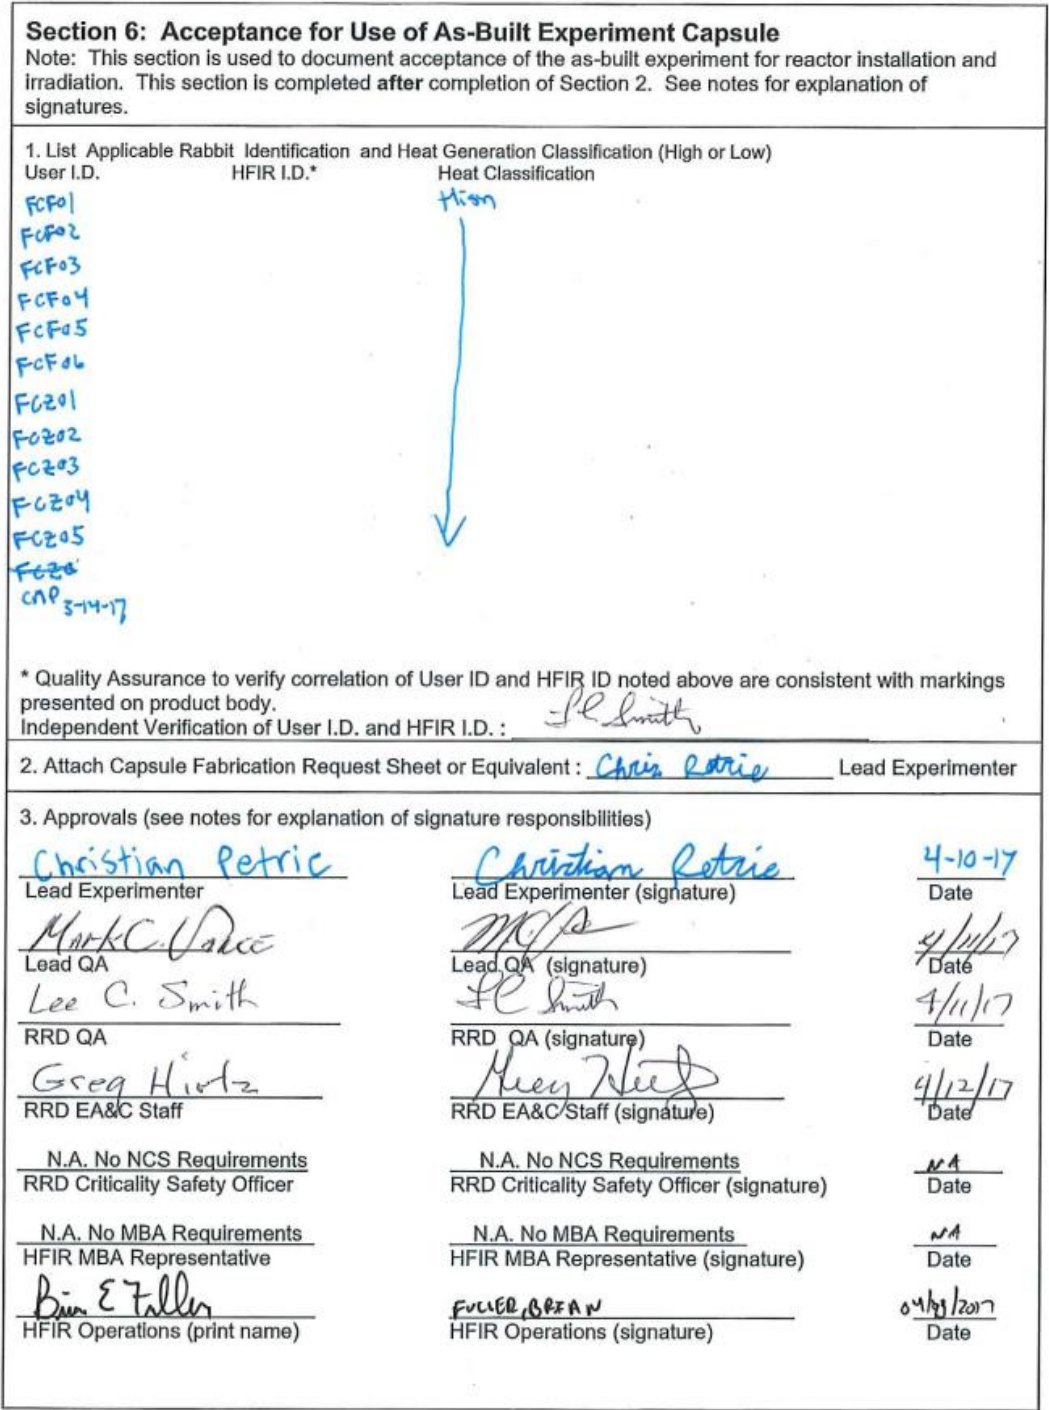 Section 6: Acceptance for Use of As-Built Experiment Capsule
Note: This section is used to document acceptance of the as-built experiment for reactor installation and
irradiation. This section is completed after completion of Section 2. See notes for explanation of
signatures.
1. List Applicable Rabbit Identification and Heat Generation Classification (High or Low)
User I.D. HFIR I.D.* Heat Classification
FCF01 High
FCF02
FCF03
FCF04
FCF05
FCF06
FCZ01
FCZ02
FCZ03
FCZ04
FCZ05
FCZ0
CMP 3-14-17
* Quality Assurance to verify correlation of User ID and HFIR ID noted above are consistent with markings
presented on product body.
Independent Verification of User I.D. and HFIR I.D. : LC Smith
2. Attach Capsule Fabrication Request Sheet or Equivalent : Chris Petrie Lead Experimenter
3. Approvals (see notes for explanation of signature responsibilities)
Christian Petrie Christian Petrie 4-10-17
Lead Experimenter Lead Experimenter (signature) Date
Mark C. Vance 4/11/17
Lead QA Lead QA (signature) Date
Lee C. Smith LC Smith 4/11/17
RRD QA RRD QA (signature) Date
Greg Hirtz Greg Hirtz 4/12/17
RRD EA&C Staff RRD EA&C Staff (signature) Date
N.A. No NCS Requirements N.A. No NCS Requirements NA
RRD Criticality Safety Officer RRD Criticality Safety Officer (signature) Date
N.A. No MBA Requirements N.A. No MBA Requirements NA
HFIR MBA Representative HFIR MBA Representative (signature) Date
Brian E Fuller FULLER, BRIAN
HFIR Operations (print name) HFIR Operations (signature) Date